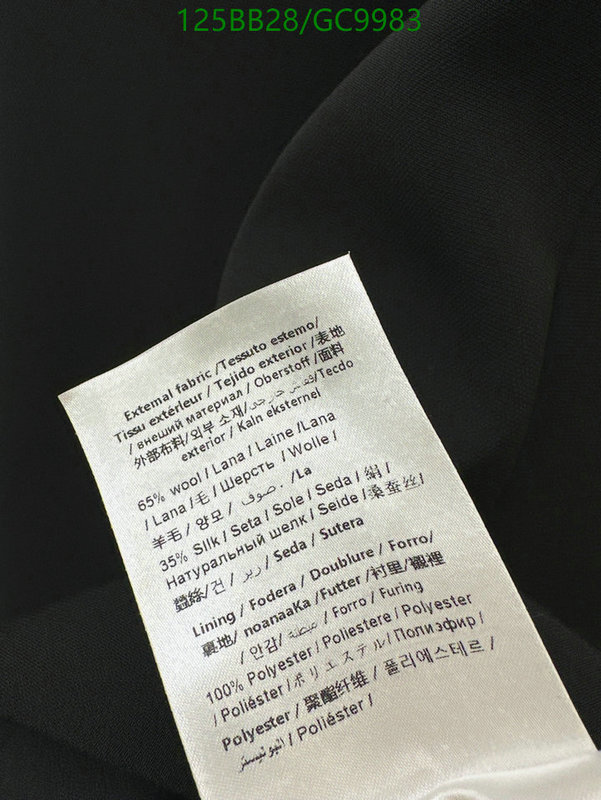 125BB28/GC9983
External fabric /Tessuto estemo/
Tissu extérleur / Tejido exterior /表地
/ внеший материал / Oberstoff /面料
外部布料/외부 소재/قماش خارجي/Tecdo
exterior / Kain eksternel
65% wool / Lana / Laine /Lana
/ Lana /毛 / Шерсть / Wolle /
羊毛 / 양모 / صوف . /La
35% Silk / Seta / Sole / Seda / 絹 /
Натуральный шелк / Seide /桑蚕丝/
蠶絲/건 / رير / Seda / Sutera
Lining / Fodera / Doublure / Forro/
裏地/ noanaaKa /Futter /衬里/襯裡
/ 안감/ / Forro / Furing
100% Polyester / Poliestere / Polyester
/ Poliéster /ポリエステル/ Полиэфир/
Polyester / 聚酯纤维 / 폴리에스테르 /
/ Poliéster /